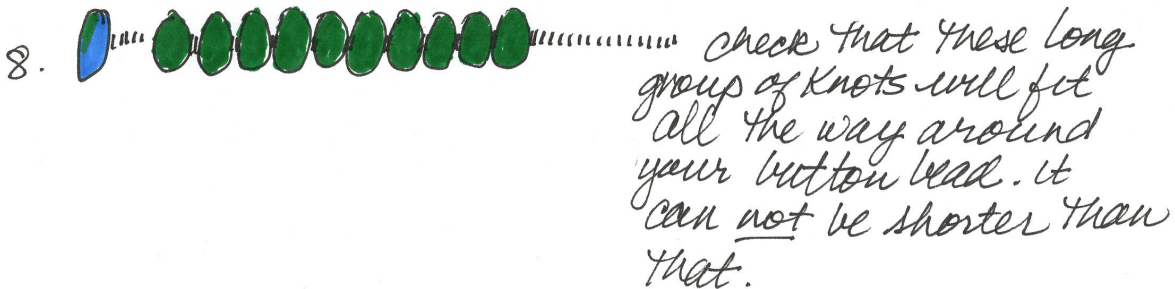 8.
check that these long
group of knots will fit
all the way around
your button bead. it
can not be shorter than
that.